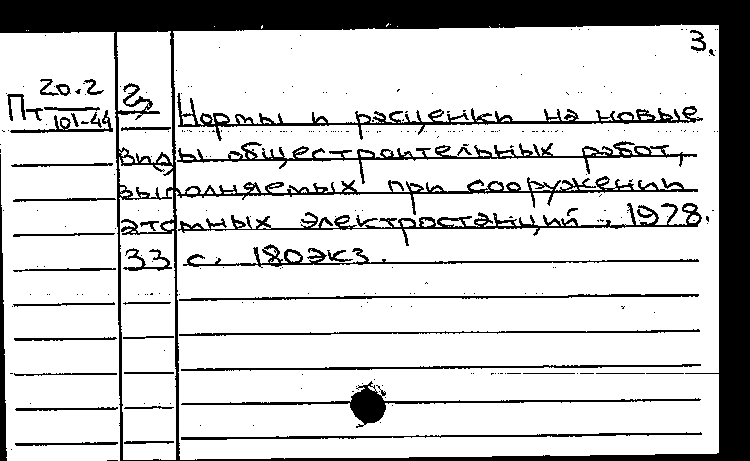 3.
20.2
Пт 101-44
Нормы и расценки на новые
виды общестроительных работ,
выполняемых при сооружении
атомных электростанций, 1978.
33 с. 180экз.